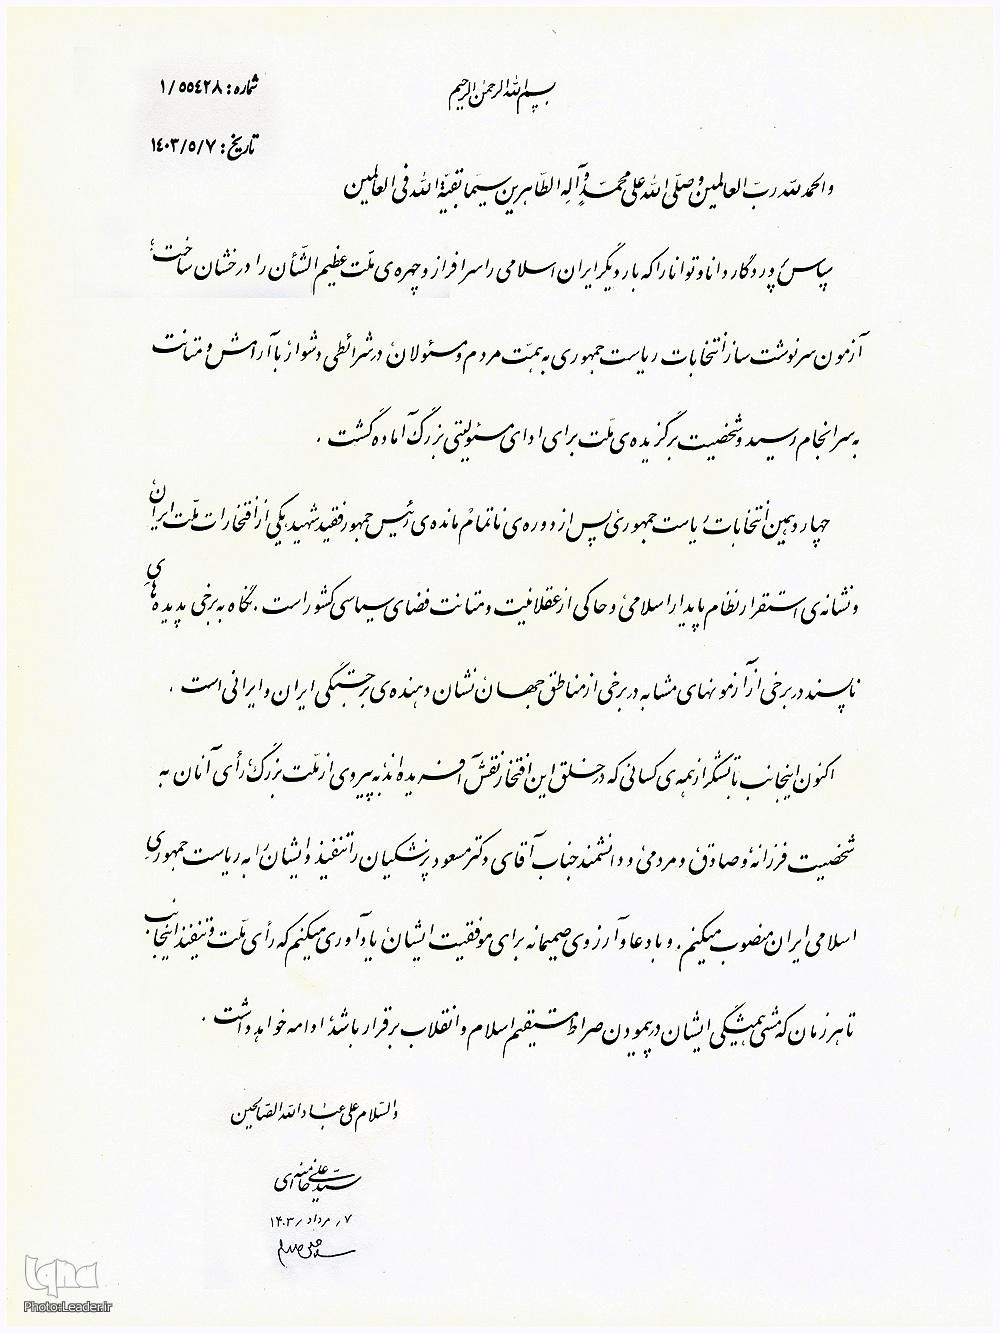 بسم الله الرحمن الرحیم
شماره: ۱/۵۵۴۲۸
تاریخ: ۱۴۰۳/۵/۷
والحمد لله رب العالمین و صلّی الله علی محمدٍ و آلِهِ الطّاهرین سیّما بقیّة الله فی العالمین
سپاس پروردگار دانا و توانا را که بار دیگر ایران اسلامی را سرافراز و چهره‌ی ملّت عظیم الشّأن را درخشان ساخت؛
آزمون سرنوشت ساز انتخابات ریاست جمهوری به همّت مردم و مسئولان در شرائطی دشوار با آرامش و متانت
به سرانجام رسید و شخصیت برگزیده‌ی ملّت برای ادای مسئولیتی بزرگ آماده گشت .
چهاردهمین انتخابات ریاست جمهوری پس از دوره‌ی ناتمام مانده‌ی رئیس جمهور فقید شهید، یکی از افتخارات ملّت ایران
و نشانه‌ی استقرار نظام پایدار اسلامی و حاکی از عقلانیت و متانت فضای سیاسی کشور است . نگاه به برخی پدیده‌های
ناپسند در برخی از آزمونهای مشابه در برخی از مناطق جهان نشان دهنده‌ی برجستگی ایران و ایرانی است .
اکنون اینجانب با تشکّر از همه‌ی کسانی که در خلق این افتخار نقش آفریده‌اند، به پیروی از ملّت بزرگ، رأی آنان به
شخصیت فرزانه و صادق و مردمی و دانشمند جناب آقای دکتر مسعود پزشکیان را تنفیذ و ایشان را به ریاست جمهوریِ
اسلامی ایران منصوب میکنم . و با دعا و آرزوی صمیمانه برای موفقیت ایشان یادآوری میکنم که رأی ملّت و تنفیذ اینجانب
تا هر زمان که مَشی همیشگی ایشان در پیمودن صراط مستقیم اسلام و انقلاب برقرار باشد، ادامه خواهد داشت .
والسّلام علی عباد الله الصّالحین
سیّدعلی خامنه‌ای
۷/ مرداد/ ۱۴۰۳
iqna
Photo:Leader.ir